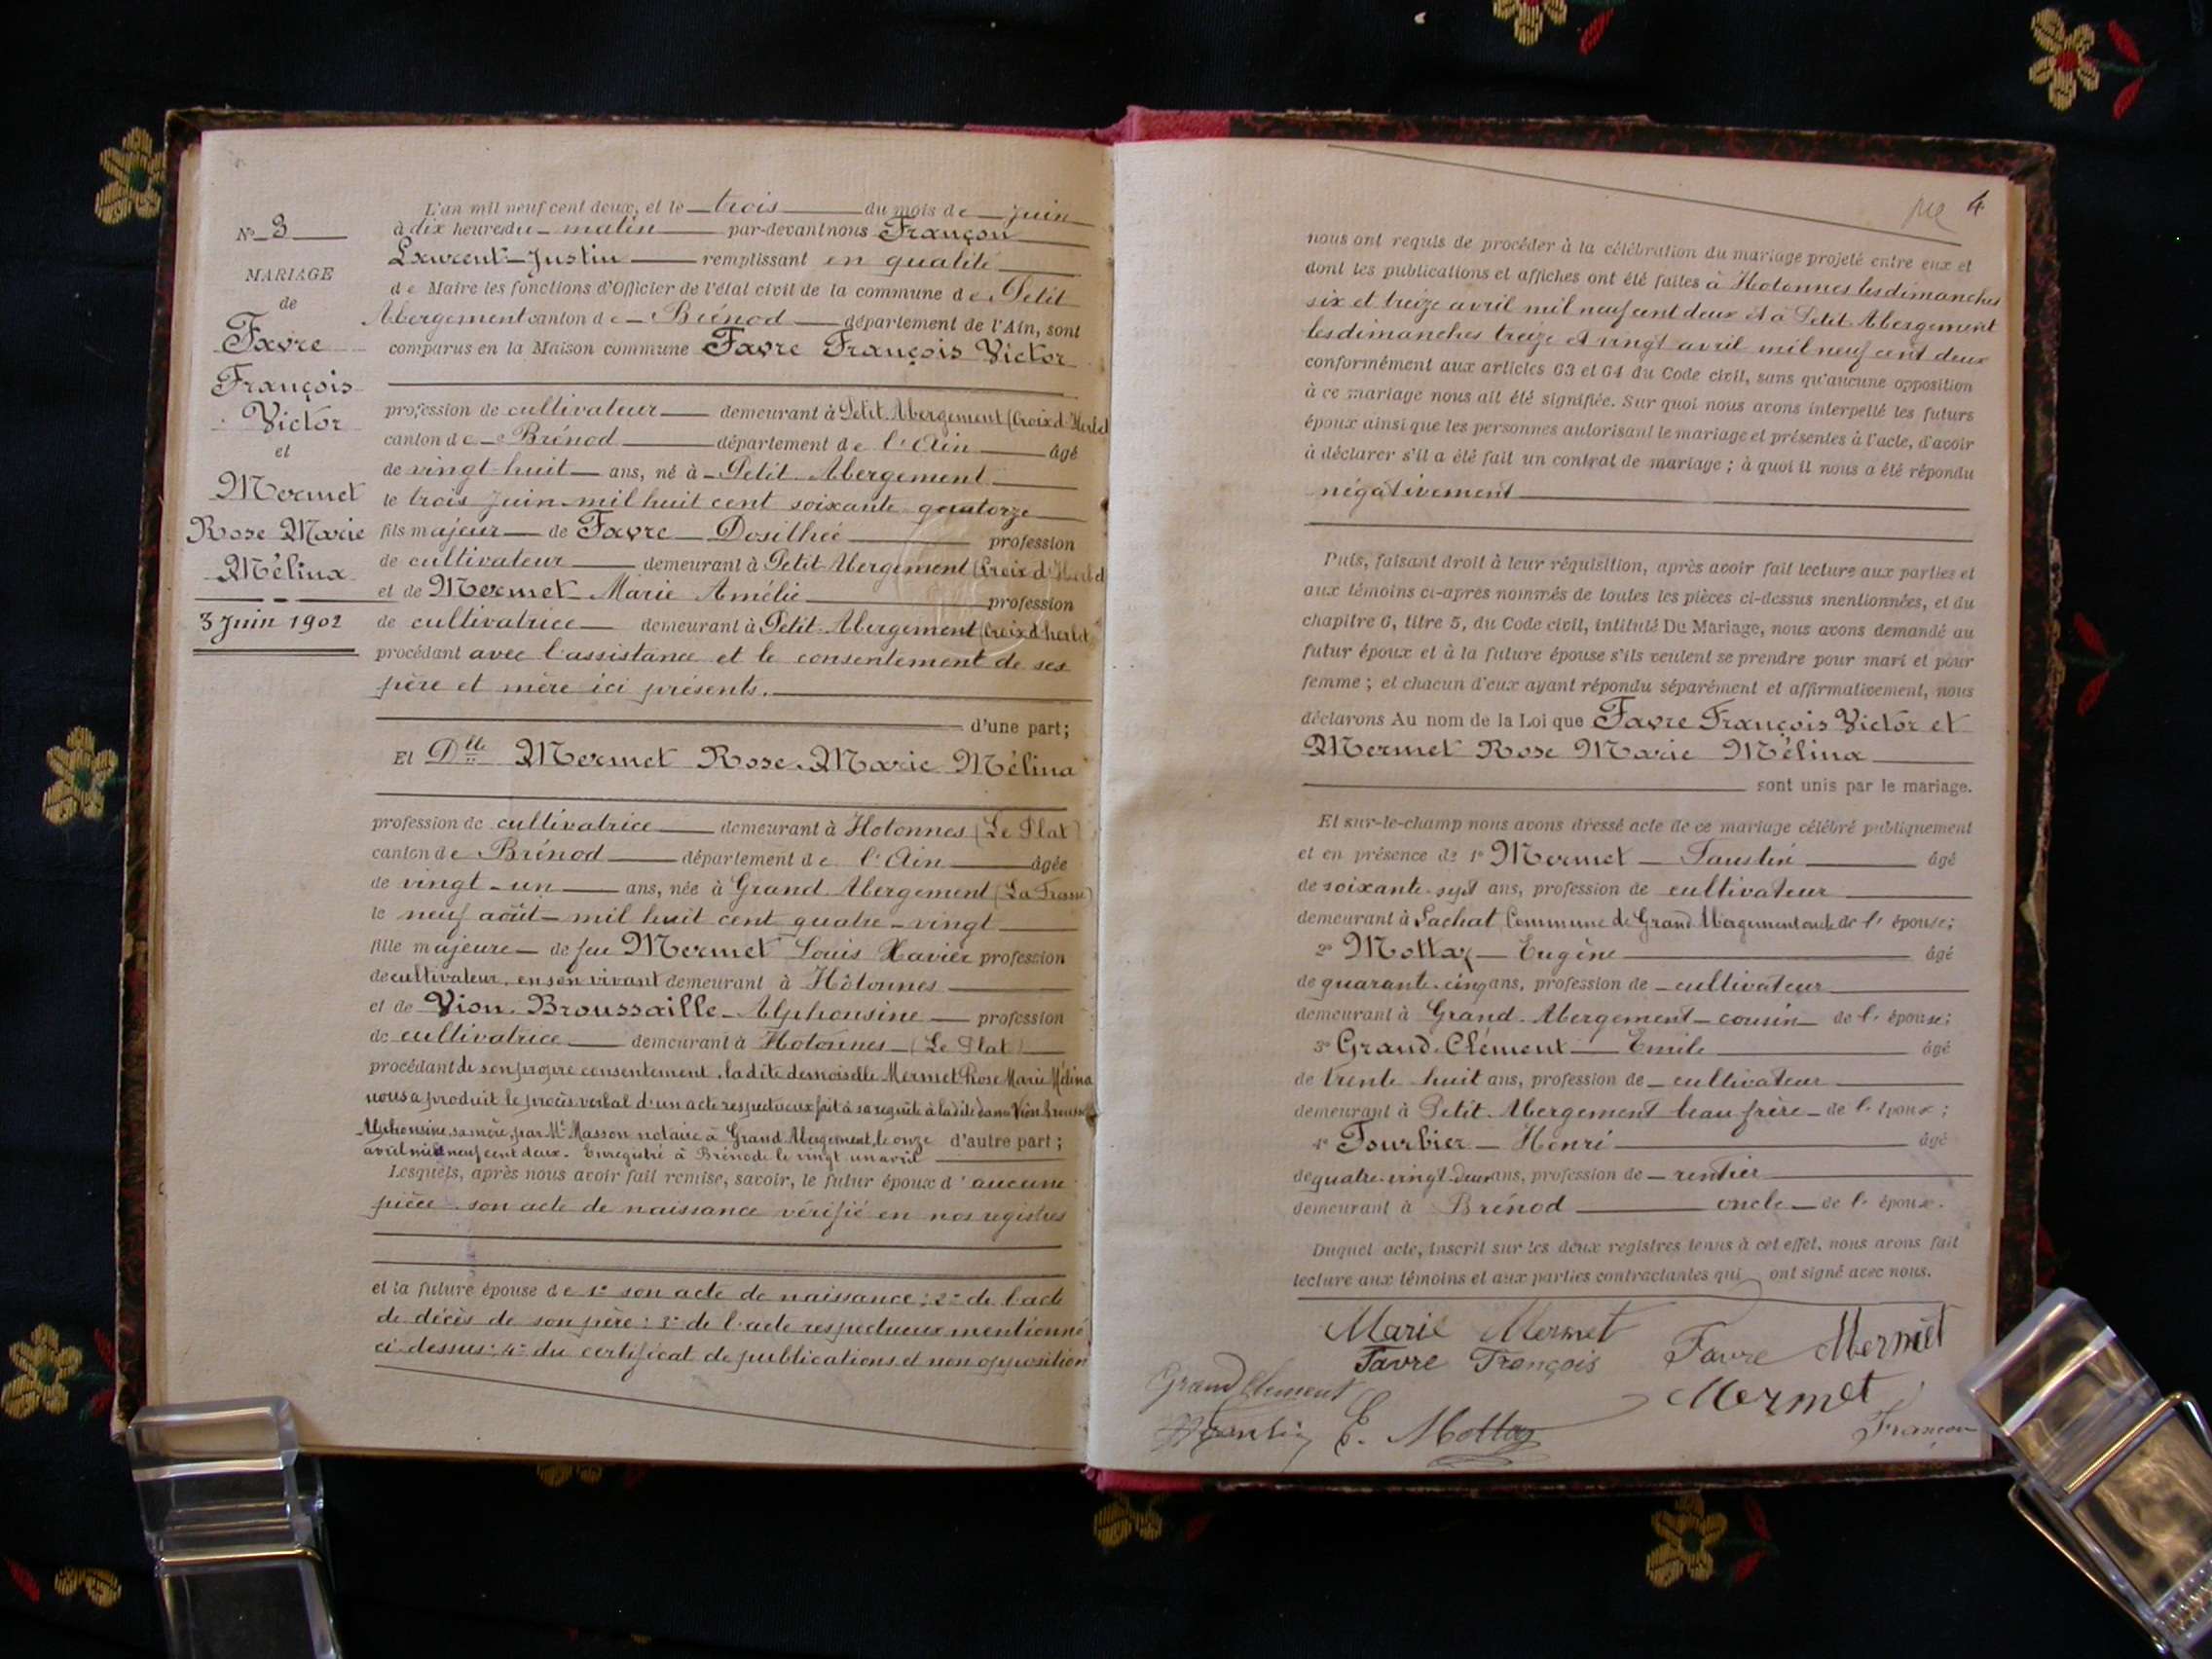 N° 3
MARIAGE
de
Favre
François
Victor
et
Mermet
Rose Marie
Mélina
3 Juin 1902
L'an mil neuf cent deux, et le trois du mois de Juin
à dix heures du matin par-devant nous Françon
Laurent-Justin remplissant en qualité
de Maire les fonctions d'Officier de l'état civil de la commune de Petit
Abergement canton de Brénod département de l'Ain, sont
comparus en la Maison commune Favre François Victor
profession de cultivateur demeurant à Petit-Abergement (Croix d'
canton de Brénod département de l'Ain âgé
de vingt-huit ans, né à Petit-Abergement
le trois Juin mil huit cent soixante-quatorze
fils majeur de Favre Dosithée profession
de cultivateur demeurant à Petit-Abergement (Croix d'
et de Mermet Marie Amélie profession
de cultivatrice demeurant à Petit-Abergement (Croix d'
procédant avec l'assistance et le consentement de ses
père et mère ici présents.
d'une part;
Et Dlle Mermet Rose-Marie Mélina
profession de cultivatrice demeurant à Hotonnes (Le Plat)
canton de Brénod département de l'Ain âgée
de vingt-un ans, née à Grand-Abergement
le neuf août mil huit cent quatre-vingt
fille majeure de feu Mermet Louis Xavier profession
de cultivateur, en son vivant demeurant à Hôtonnes
et de Vion-Broussaille Alphonsine profession
de cultivatrice demeurant à Hotonnes (Le Plat)
procédant de son propre consentement, la dite demoiselle Mermet Rose Marie Mélina
nous a produit le procès verbal d'un acte respectueux fait à sa requête à la dite dame Vion
Alphonsine, sa mère, par Me Masson notaire à Grand-Abergement, le onze d'autre part;
avril mil neuf cent deux. Enregistré à Brénod le vingt un avril
Lesquels, après nous avoir fait remise, savoir, le futur époux d'aucune
pièce son acte de naissance vérifié en nos registres
et la future épouse de 1° son acte de naissance; 2° de l'acte
de décès de son père; 3° de l'acte respectueux mentionné
ci-dessus; 4° du certificat de publications et non opposition
4
nous ont requis de procéder à la célébration du mariage projeté entre eux et
dont les publications et affiches ont été faites à Hotonnes les dimanches
six et treize avril mil neuf cent deux et à Petit Abergement
les dimanches treize et vingt avril mil neuf cent deux
conformément aux articles 63 et 64 du Code civil, sans qu'aucune opposition
à ce mariage nous ait été signifiée. Sur quoi nous avons interpellé les futurs
époux ainsi que les personnes autorisant le mariage et présentes à l'acte, d'avoir
à déclarer s'il a été fait un contrat de mariage; à quoi il nous a été répondu
négativement
Puis, faisant droit à leur réquisition, après avoir fait lecture aux parties et
aux témoins ci-après nommés de toutes les pièces ci-dessus mentionnées, et du
chapitre 6, titre 5, du Code civil, intitulé Du Mariage, nous avons demandé au
futur époux et à la future épouse s'ils veulent se prendre pour mari et pour
femme; et chacun d'eux ayant répondu séparément et affirmativement, nous
déclarons Au nom de la Loi que Favre François Victor et
Mermet Rose Marie Mélina
sont unis par le mariage.
Et sur-le-champ nous avons dressé acte de ce mariage célébré publiquement
et en présence de 1° Mermet Faustin âgé
de soixante-sept ans, profession de cultivateur
demeurant à Commune de Grand Abergement oncle de l'épouse;
2° Mottaz Eugène âgé
de quarante-cinq ans, profession de cultivateur
demeurant à Grand-Abergement cousin de l'épouse;
3° Grand-Clément Emile âgé
de trente-huit ans, profession de cultivateur
demeurant à Petit-Abergement beau-frère de l'époux;
4° Tourbier Henri âgé
de quatre-vingt-deux ans, profession de rentier
demeurant à Brénod oncle de l'époux.
Duquel acte, inscrit sur les deux registres tenus à cet effet, nous avons fait
lecture aux témoins et aux parties contractantes qui ont signé avec nous.
Marie Mermet
Favre François Favre Mermet
Grand Clement Mermet
E. Mottaz Françon